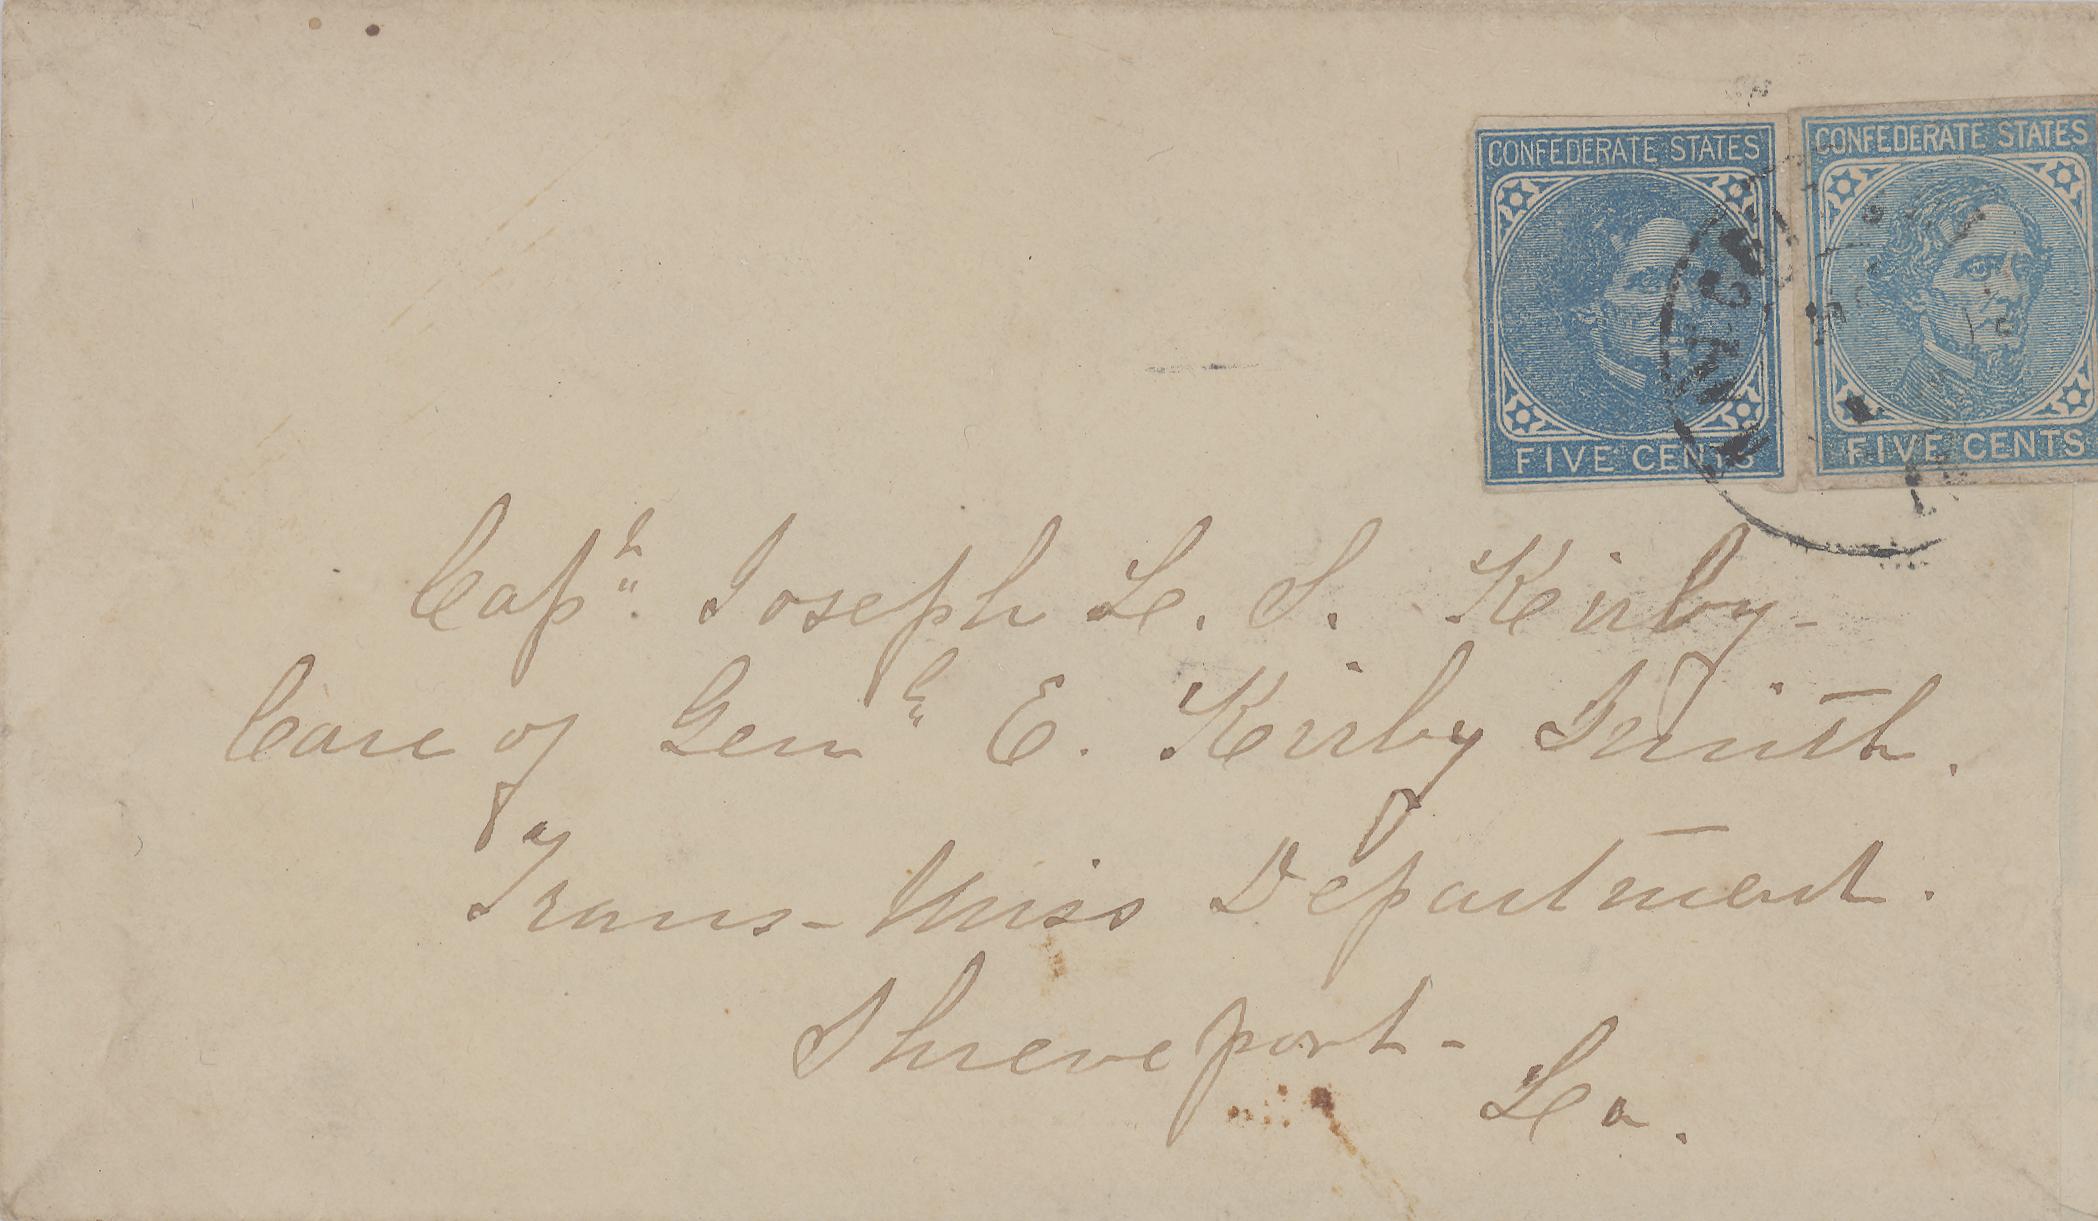 CONFEDERATE STATES
FIVE CENTS
CONFEDERATE STATES
FIVE CENTS
Capt. Joseph L. S. Kirby-
Care of Genl E. Kirby Smith.
Trans-Miss Department.
Shreveport- La.